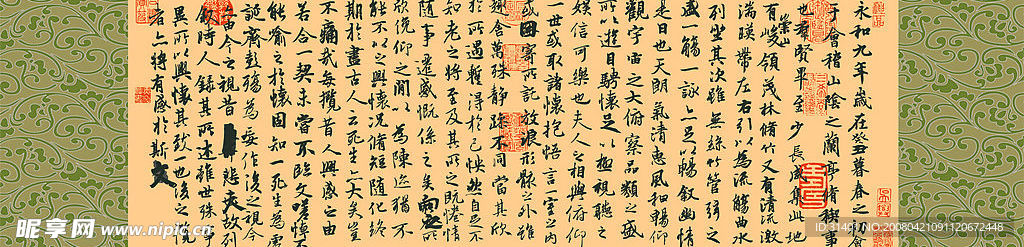 永和九年歲在癸丑暮春之初會
于會稽山陰之蘭亭脩稧事
也群賢畢至少長咸集此地
有崇山峻領茂林脩竹又有清流激
湍暎帶左右引以為流觴曲水
列坐其次雖無絲竹管弦之
盛一觴一詠亦足以暢敘幽情
是日也天朗氣清惠風和暢仰
觀宇宙之大俯察品類之盛
所以遊目騁懷足以極視聽之
娛信可樂也夫人之相與俯仰
一世或取諸懷抱悟言一室之內
或因寄所託放浪形骸之外雖
趣舍萬殊靜躁不同當其欣
於所遇蹔得於己怏然自足不
知老之將至及其所之既惓情
隨事遷感慨係之矣向之所
欣俛仰之閒以為陳迹猶不
能不以之興懷況脩短隨化終
期於盡古人云死生亦大矣豈
不痛哉每攬昔人興感之由
若合一契未嘗不臨文嗟悼不
能喻之於懷固知一死生為虛
誕齊彭殤為妄作後之視今
亦由今之視昔悲夫故列
敘時人錄其所述雖世殊事
異所以興懷其致一也後之攬
者亦將有感於斯文
昵享网 www.nipic.cn
NO:20080421091120672448